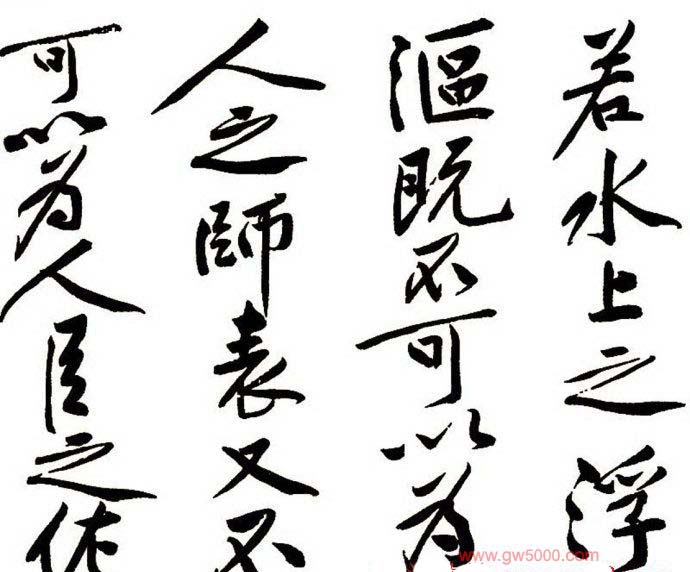 若水上之浮
漚既不可以為
人之師表又不
可以為人臣之佐
www.gw5000.com